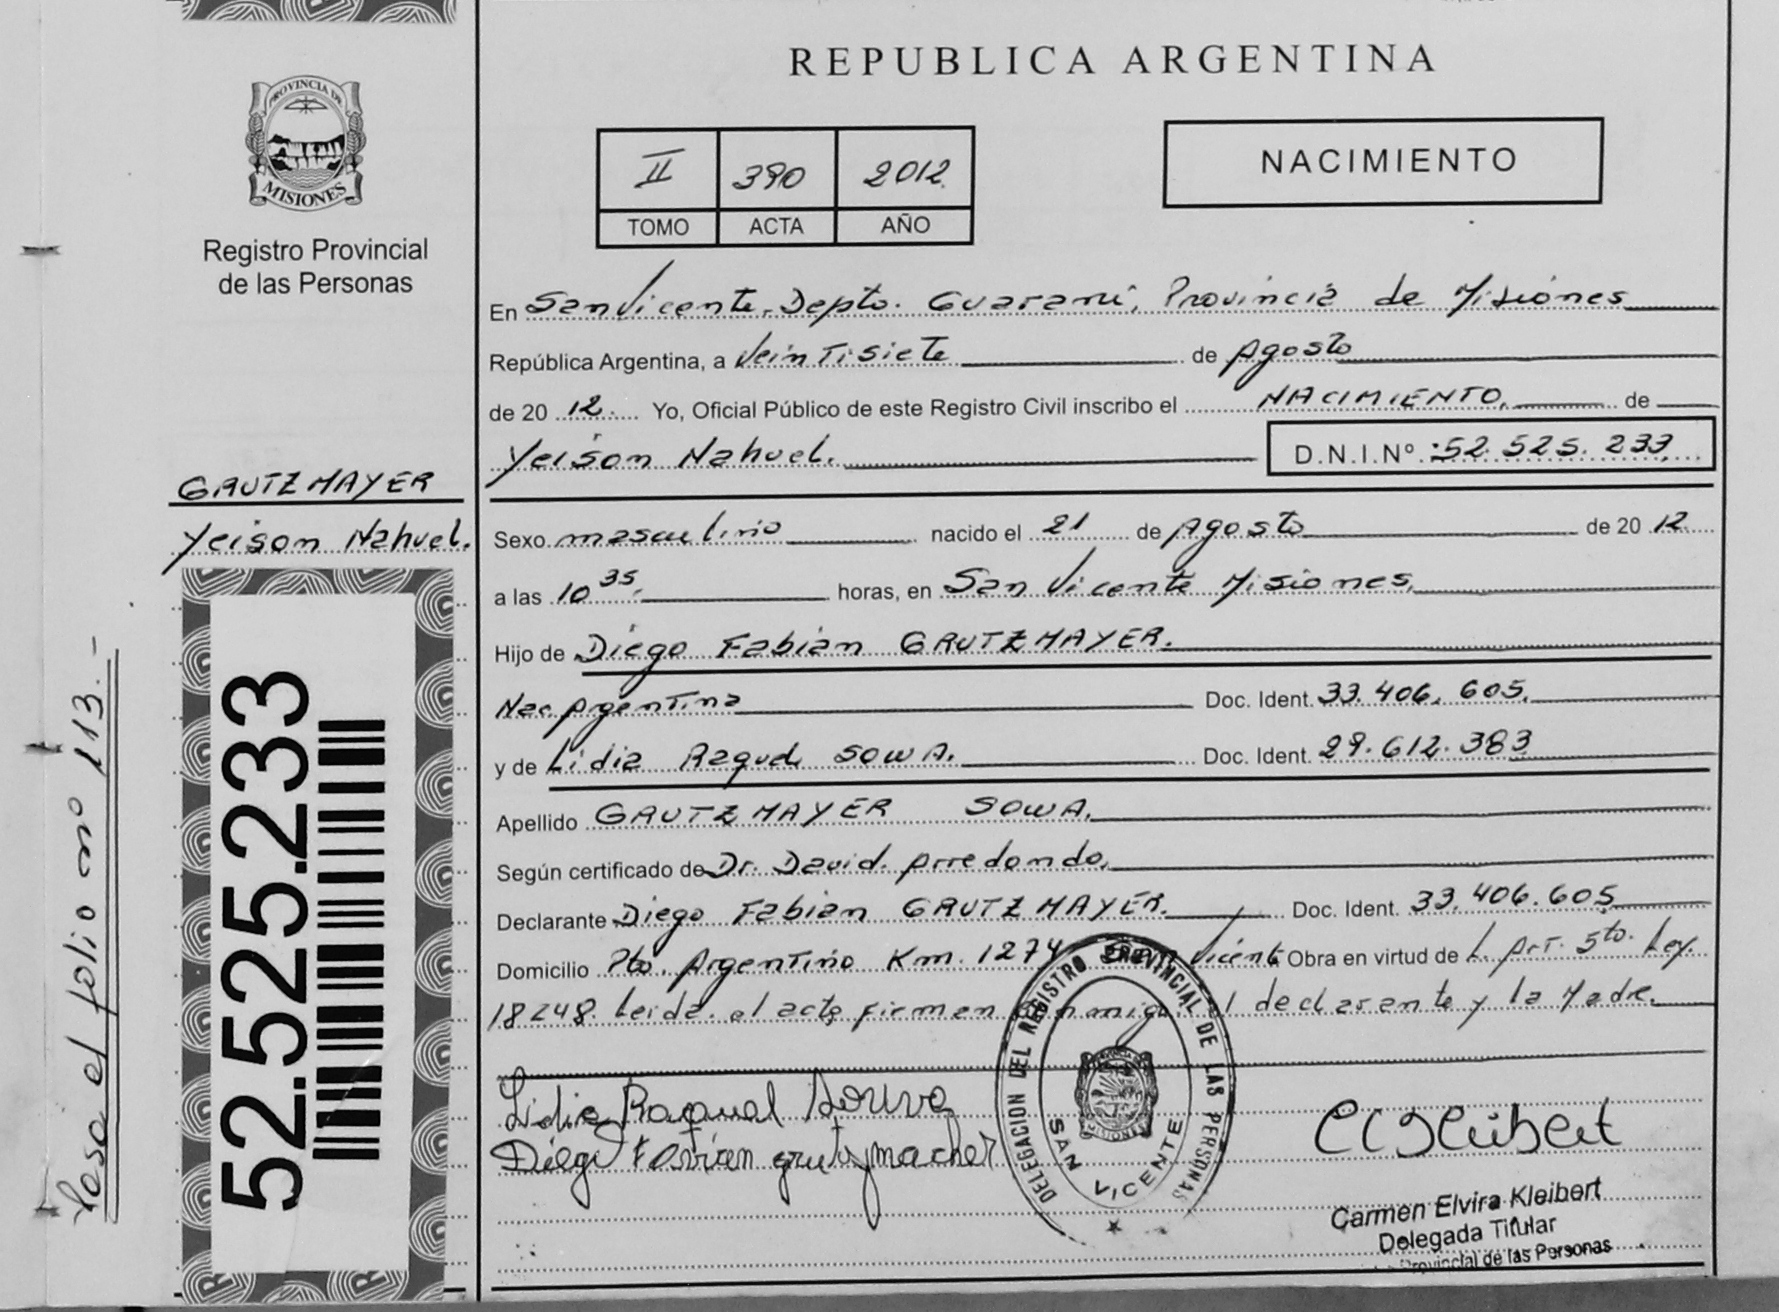 REPUBLICA ARGENTINA
PROVINCIA DE
MISIONES
Registro Provincial
de las Personas
II 390 2012
TOMO ACTA AÑO
NACIMIENTO
En San Vicente, Depto. Guaraní, Provincia de Misiones
República Argentina, a Veintisiete de Agosto
de 20 12. Yo, Oficial Público de este Registro Civil inscribo el NACIMIENTO, de
Yeison Nahuel. D.N.I.Nº: 52.525.233
GRUTZMAYER
Yeison Nahuel.
Sexo masculino nacido el 21 de Agosto de 20 12
a las 10 35 horas, en San Vicente Misiones,
Hijo de Diego Fabian GRUTZMAYER.
Nac. Argentina Doc. Ident. 33.406.605.
y de Lidia Raquel SOWA. Doc. Ident. 29.612.383
Apellido GRUTZMAYER SOWA.
Según certificado de Dr. David Arredondo.
Declarante Diego Fabian GRUTZMAYER. Doc. Ident. 33.406.605
Domicilio Pto. Argentino Km. 1274 San Vicente Obra en virtud de L. Art. 5to. Ley.
18248. Leida el acta firman conmigo el declarante y la Madre.
Lidia Raquel Souva
Diego Fabian grutzmacher
DELEGACION DEL REGISTRO PROVINCIAL DE LAS PERSONAS
SAN VICENTE
MISIONES
Carmen Elvira Kleibert
Delegada Titular
Provincial de las Personas
52.525.233
Pasa el folio nº 113.-